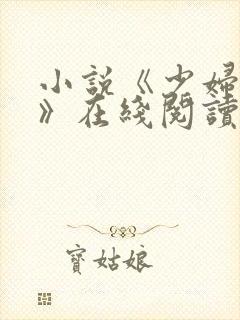 小說《少婦
》在綫閱讀
寶姑娘